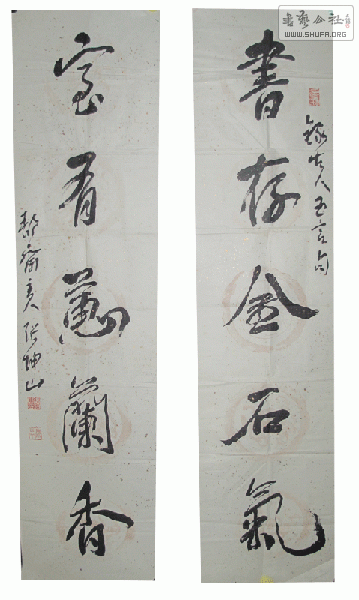 書艺公社
WWW.SHUFA.ORG
書存金石氣
錄古人五言句
室有蕙蘭香
黎齋主人張坤山